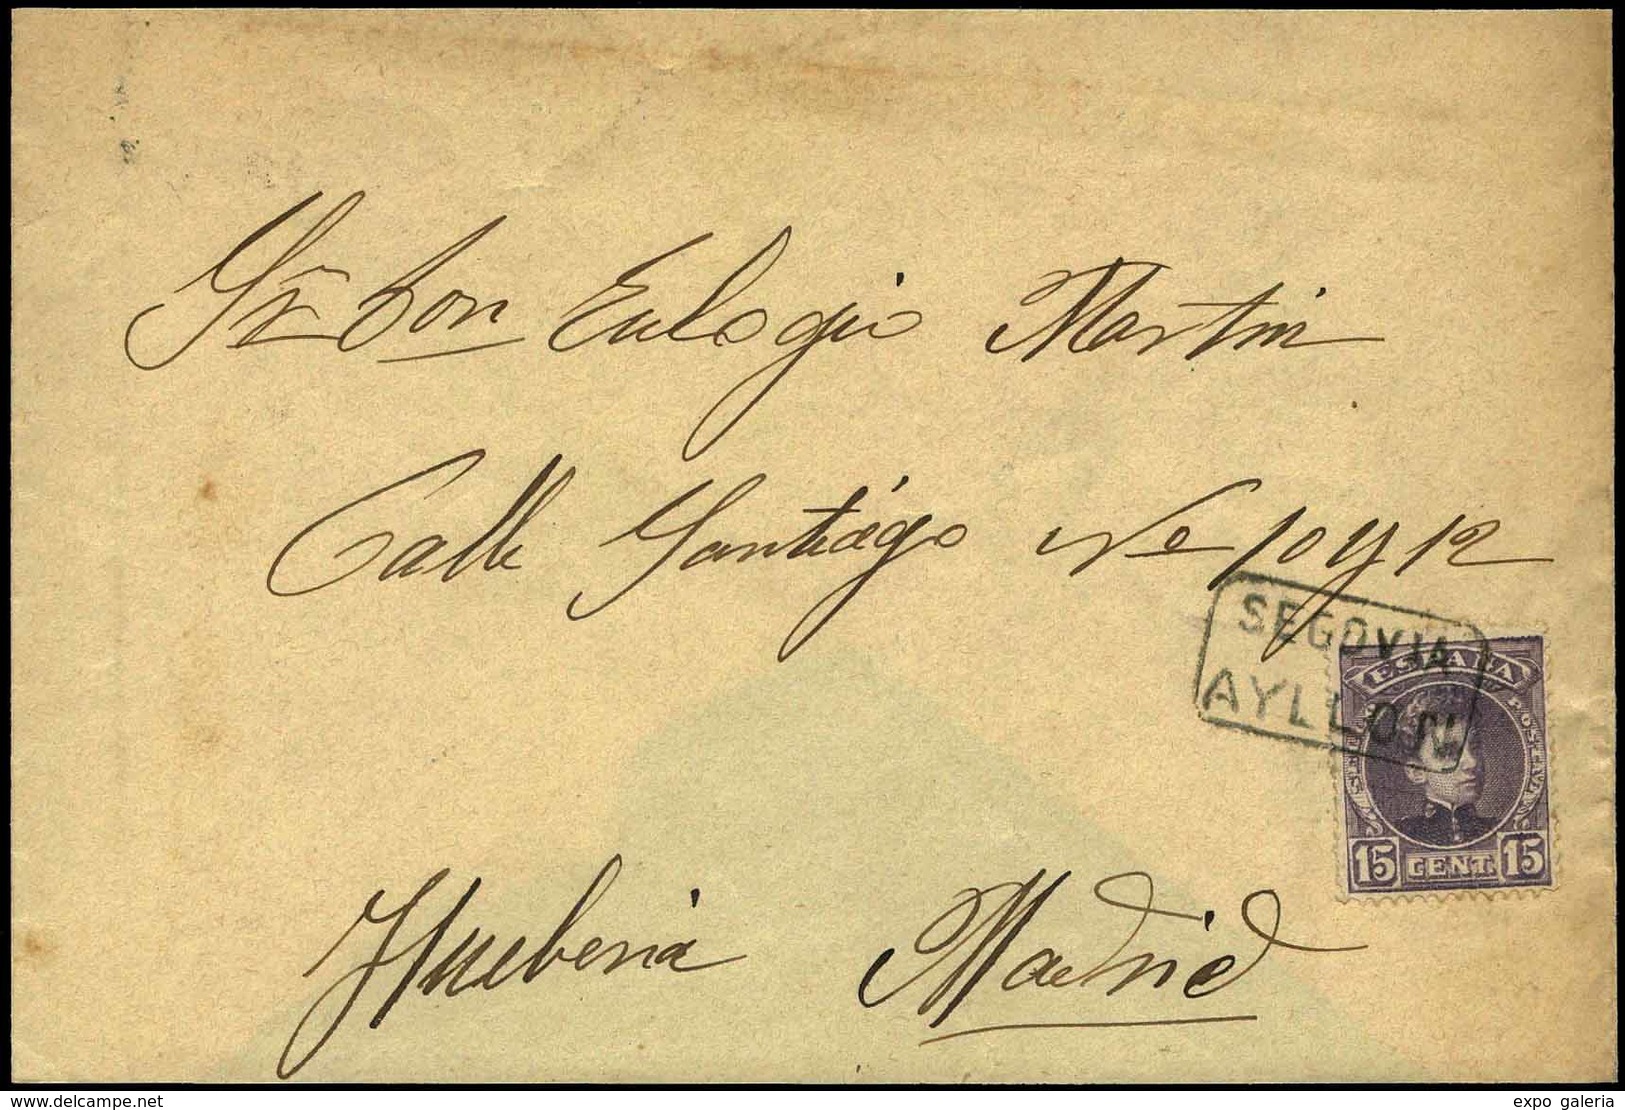 Sr Don Eulogio Martin
Calle Santiago No 10 y 12
SEGOVIA
AYLLON
ESPAÑA
15 CENT. 15
Hueberia Madrid
www.delcampe.net
expo galeria